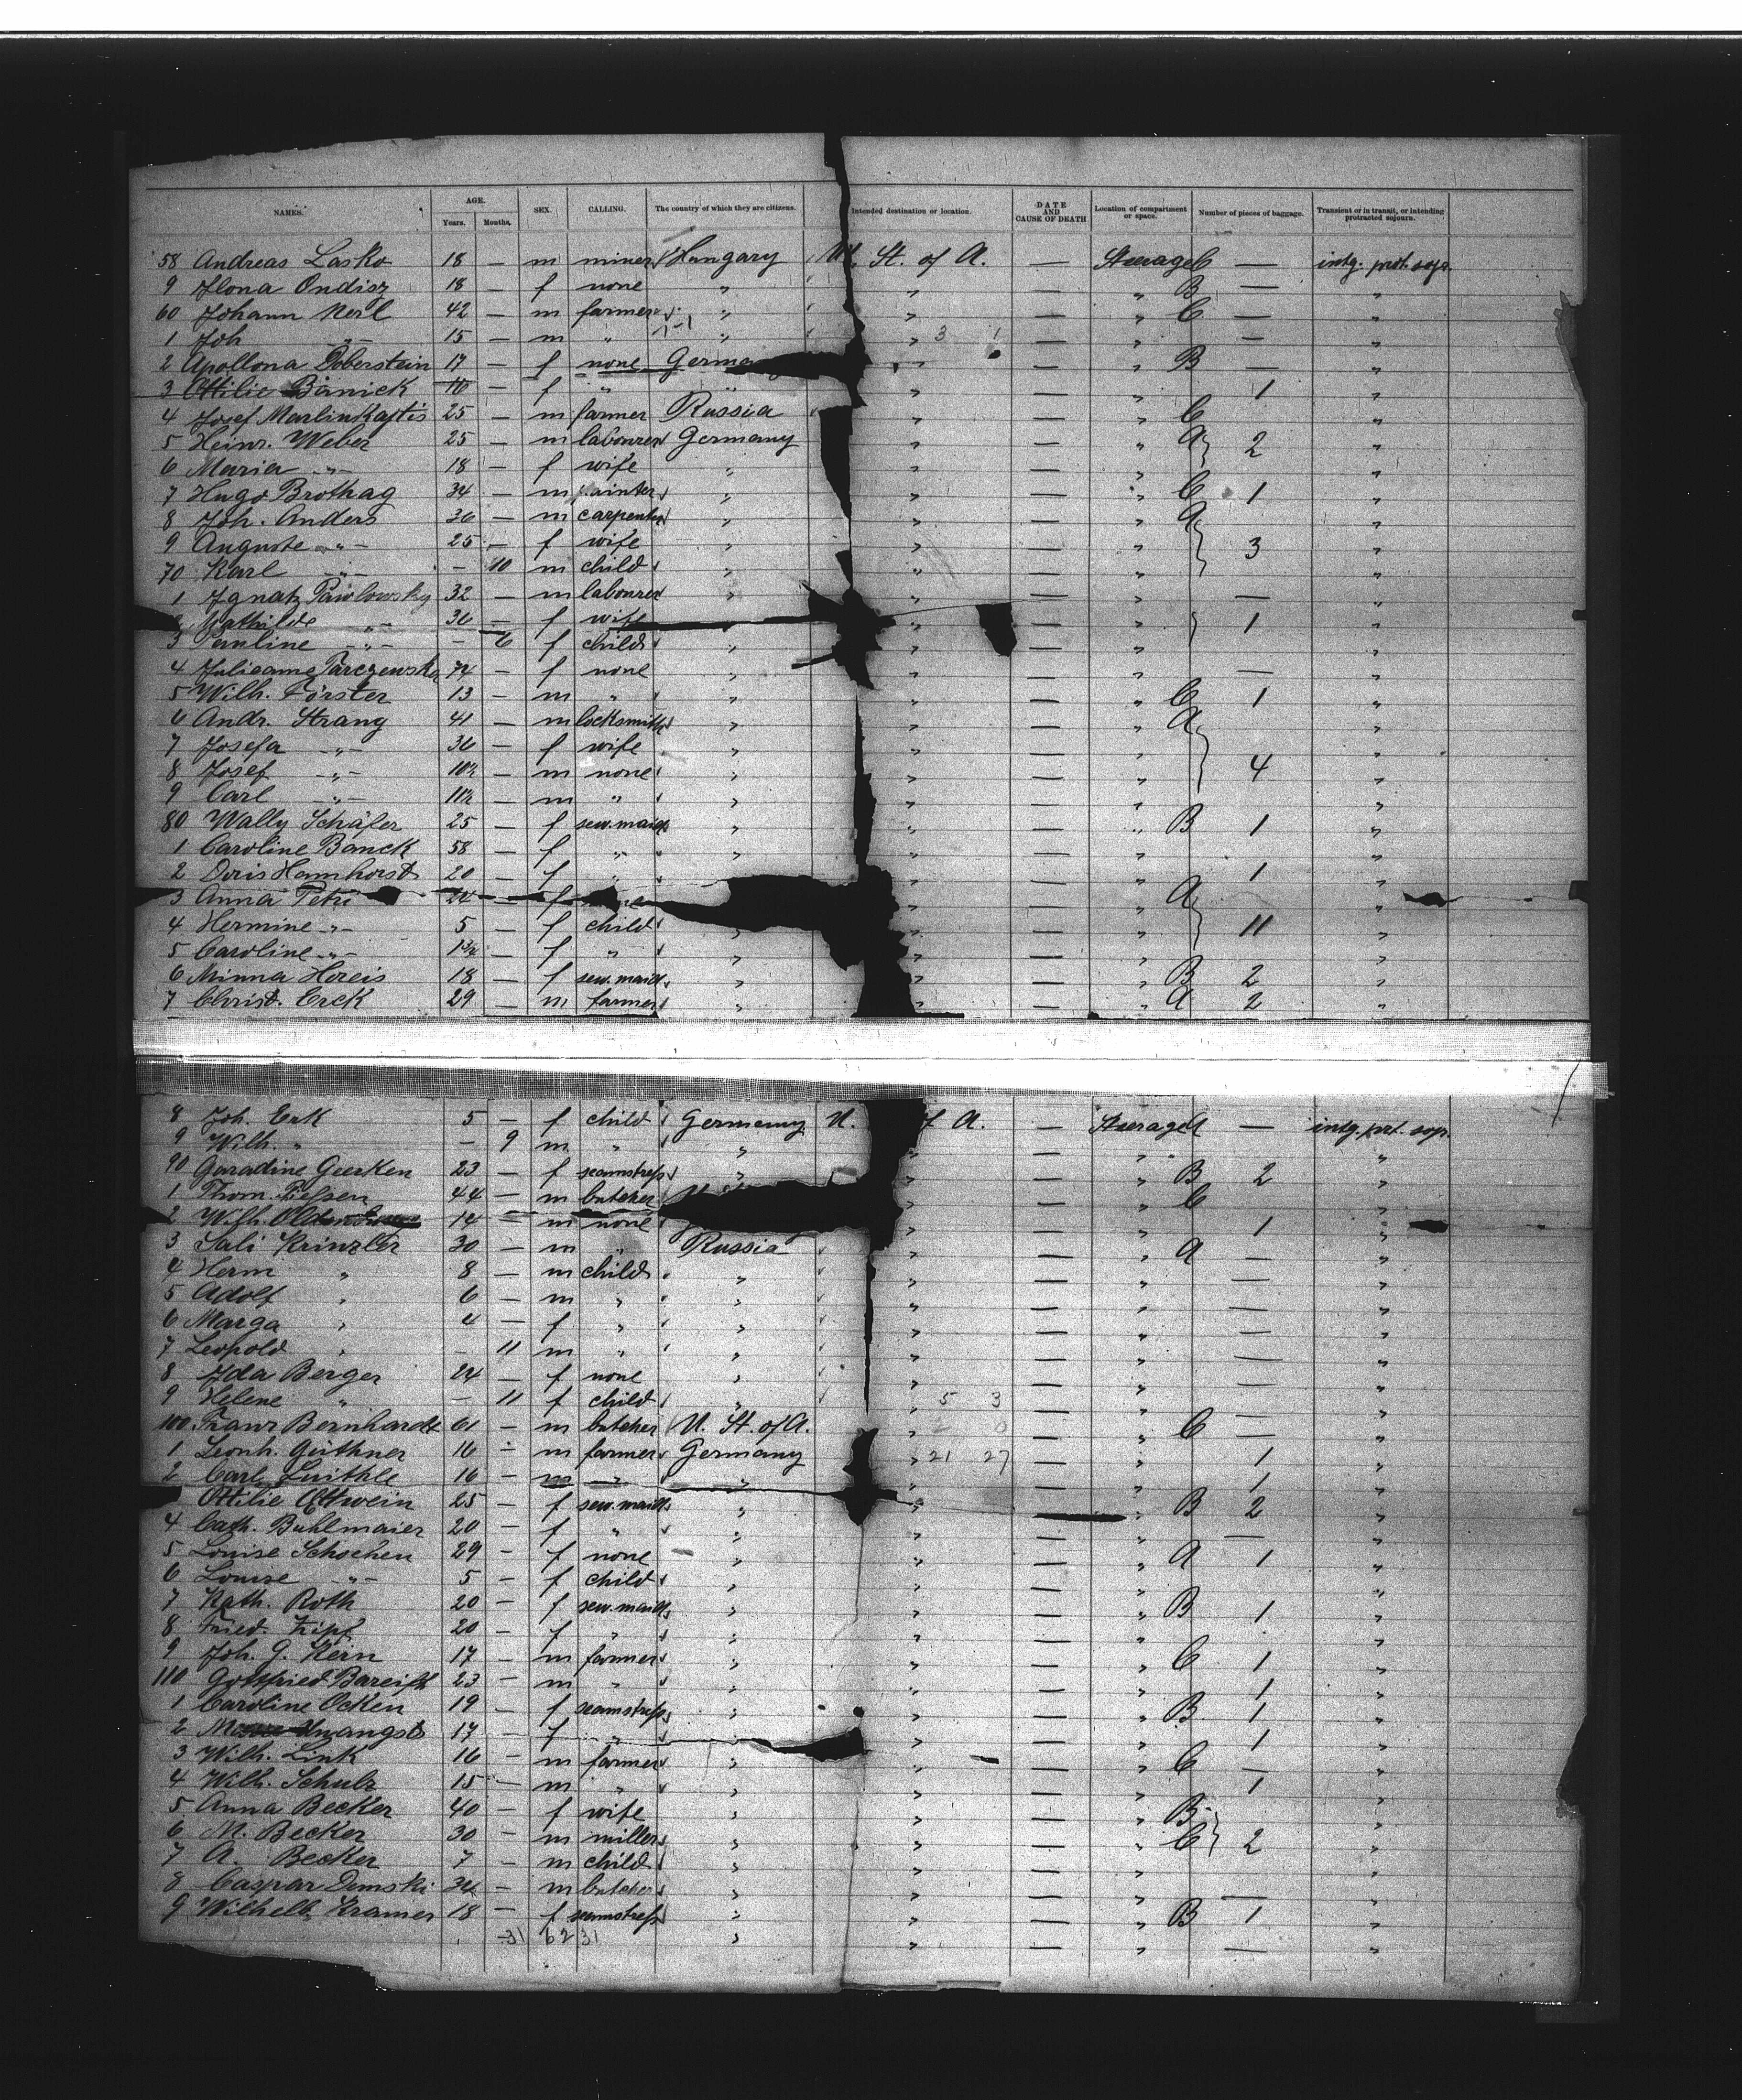 NAMES. AGE. Years. Months. SEX. CALLING. The country of which they are citizens. Intended destination or location. DATE AND CAUSE OF DEATH Location of compartment or space. Number of pieces of baggage. Transient or in transit, or intending protracted sojourn.
58 Andreas Lasko 18 — m miner Hungary U. St. of A. — Steerage C — intg. prot. soj.
9 Ilona Ondisz 18 — f none " " — " B — "
60 Johann Kerl 42 — m farmer " " — " C — "
1 Joh -"- 15 — m " " " 3 1 — " — "
2 Apollona Doberstein 17 — f none Germany " — " B — "
3 Ottilie Bänick — f " " " — " 1 "
4 Josef Marlinkajtis 25 — m farmer Russia " — " C "
5 Heinr. Weber 25 — m labourer Germany " — " A 2 "
6 Maria -"- 18 — f wife " " — " "
7 Hugo Brothag 34 — m painter " " — " C 1 "
8 Joh. Anders 36 — m carpenter " " — " A "
9 Auguste -"- 25 — f wife " " — " 3 "
70 Karl -"- — 10 m child " " — " "
1 Ignatz Pawlowsky 32 — m labourer " " — " — "
Mathilde -"- 36 — f wife " " 1 "
3 Pauline -"- — 6 f child " " " "
4 Julieanne Parczewska 74 — f none " — " — "
5 Wilh. Förster 13 — m " " " — " C 1 "
6 Andr. Strang 41 — m locksmith " " — " A "
7 Josefa -"- 36 — f wife " " — " "
8 Josef -"- 10½ — m none " " — " 4 "
9 Carl -"- 11½ — m " " " — " "
80 Wally Schäfer 25 — f sew. maid " " — " B 1 "
1 Caroline Banck 58 — f " " " — " "
2 Doris Hamhorst 20 — f " " — " 1 "
3 Anna Petri 24 — f " — " A "
4 Hermine -"- 5 — f child " " — " 11 "
5 Caroline -"- — f " " " — " "
6 Minna Hereis 18 — f sew. maid " " — " B 2 "
7 Christ. Erck 29 — m farmer " " — " A 2 "
8 Joh. Erk 5 — f child Germany U. of A. — Steerage A — intg. prt. sojr.
9 Wilh. " — 9 m " " " — " "
90 Garadine Geerken 23 — f seamstress " " — " B 2 "
1 Thom. Tiessen 44 — m butcher " — " C "
2 Wilh. 14 — m none " — " 1 "
3 Sali Krinzler 30 — m " Russia " — " A — "
4 Herm " 8 — m child " " — " — "
5 Adolf " 6 — m " " " — " — "
6 Marga " 4 — f " " " — " — "
7 Leopold " — 11 m " " " — " — "
8 Ida Berger 24 — f none " " — " — "
9 Helene " — 11 f child " " 5 3 — " — "
100 Franz Bernhardt 61 — m butcher U. St. of A. " 2 0 — " C — "
1 Leonh. Güthner 16 — m farmer Germany " 21 27 — " 1 "
2 Carl Luithle 16 — m " " — " 1 "
Ottilie Ottwein 25 — f sew. maid " " " B 2 "
4 Cath. Buhlmaier 20 — f " " " — " — "
5 Louise Schochen 29 — f none " " — " A 1 "
6 Louise -"- 5 — f child " " — " "
7 Kath. Roth 20 — f sew. maid " " — " B 1 "
8 Fried. Zipf 20 — f " " " — " "
9 Joh. G. Kern 17 — m farmer " " — " C 1 "
110 Gottfried Bareiss 23 — m " " " — " 1 "
1 Caroline Ocken 19 — f seamstress " " — " B 1 "
2 17 — f " " " — " 1 "
3 Wilh. Link 16 — m farmer " " — " C — "
4 Wilh. Schulz 15 — m " " " — " 1 "
5 Anna Becker 40 — f wife " " — " B "
6 M. Becker 30 — m miller " " — " C 2 "
7 A. Becker 7 — m child " " — " "
8 Caspar Demski 34 — m butcher " " — " — "
9 Wilhelb. Kramer 18 — f seamstress " " — " B 1 "
31 62 31 " " — " — "